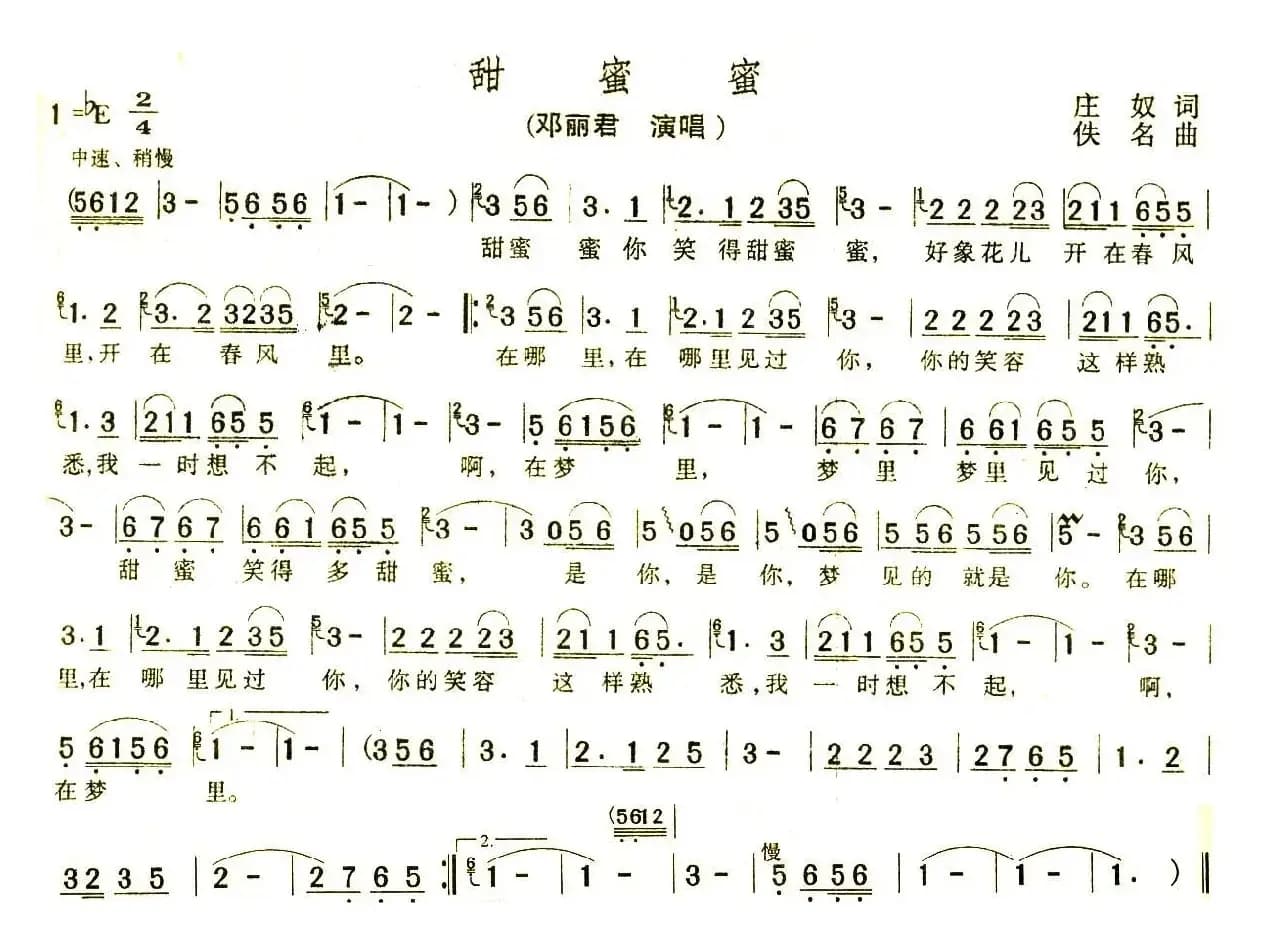 甜 蜜 蜜
1=♭E 2/4
(邓丽君 演唱)
庄 奴 词
佚 名 曲
中速、稍慢
(5612 | 3 - | 5656 | 1 - | 1 - ) | 3 56 | 3. 1 | 2. 1 2 35 | 3 - | 2 2 2 23 | 211 655 |
甜蜜 蜜你 笑 得甜蜜 蜜, 好象花儿 开 在春风
1. 2 | 3. 2 3235 | 2 - | 2 - ‖: 3 56 | 3. 1 | 2. 1 2 35 | 3 - | 2 2 2 23 | 211 65. |
里,开 在 春风 里。 在哪 里,在 哪里见过 你, 你的笑容 这样熟
1. 3 | 211 65 5 | 1 - | 1 - | 3 - | 5 6156 | 1 - | 1 - | 67 67 | 6 61 65 5 | 3 - |
悉,我 一时想 不 起, 啊, 在梦 里, 梦里 梦里 见 过 你,
3 - | 67 67 | 6 61 65 5 | 3 - | 3 056 | 5 056 | 5 056 | 5 56 5 56 | 5 - | 3 56 |
甜 蜜 笑得 多甜 蜜, 是 你,是 你, 梦 见的 就是 你。 在哪
3. 1 | 2. 1 2 35 | 3 - | 2 2 2 23 | 211 65. | 1. 3 | 211 65 5 | 1 - | 1 - | 3 - |
里,在 哪 里见过 你, 你的笑容 这 样熟 悉,我 一时想 不 起, 啊,
1.
5 6156 | 1 - | 1 - | (356 | 3. 1 | 2. 1 2 5 | 3 - | 2 2 2 3 | 2 7 6 5 | 1. 2 |
在梦 里。
(5612 |
2. 慢
32 3 5 | 2 - | 2 7 6 5 :‖ 1 - | 1 - | 3 - | 5 656 | 1 - | 1 - | 1. ) ‖